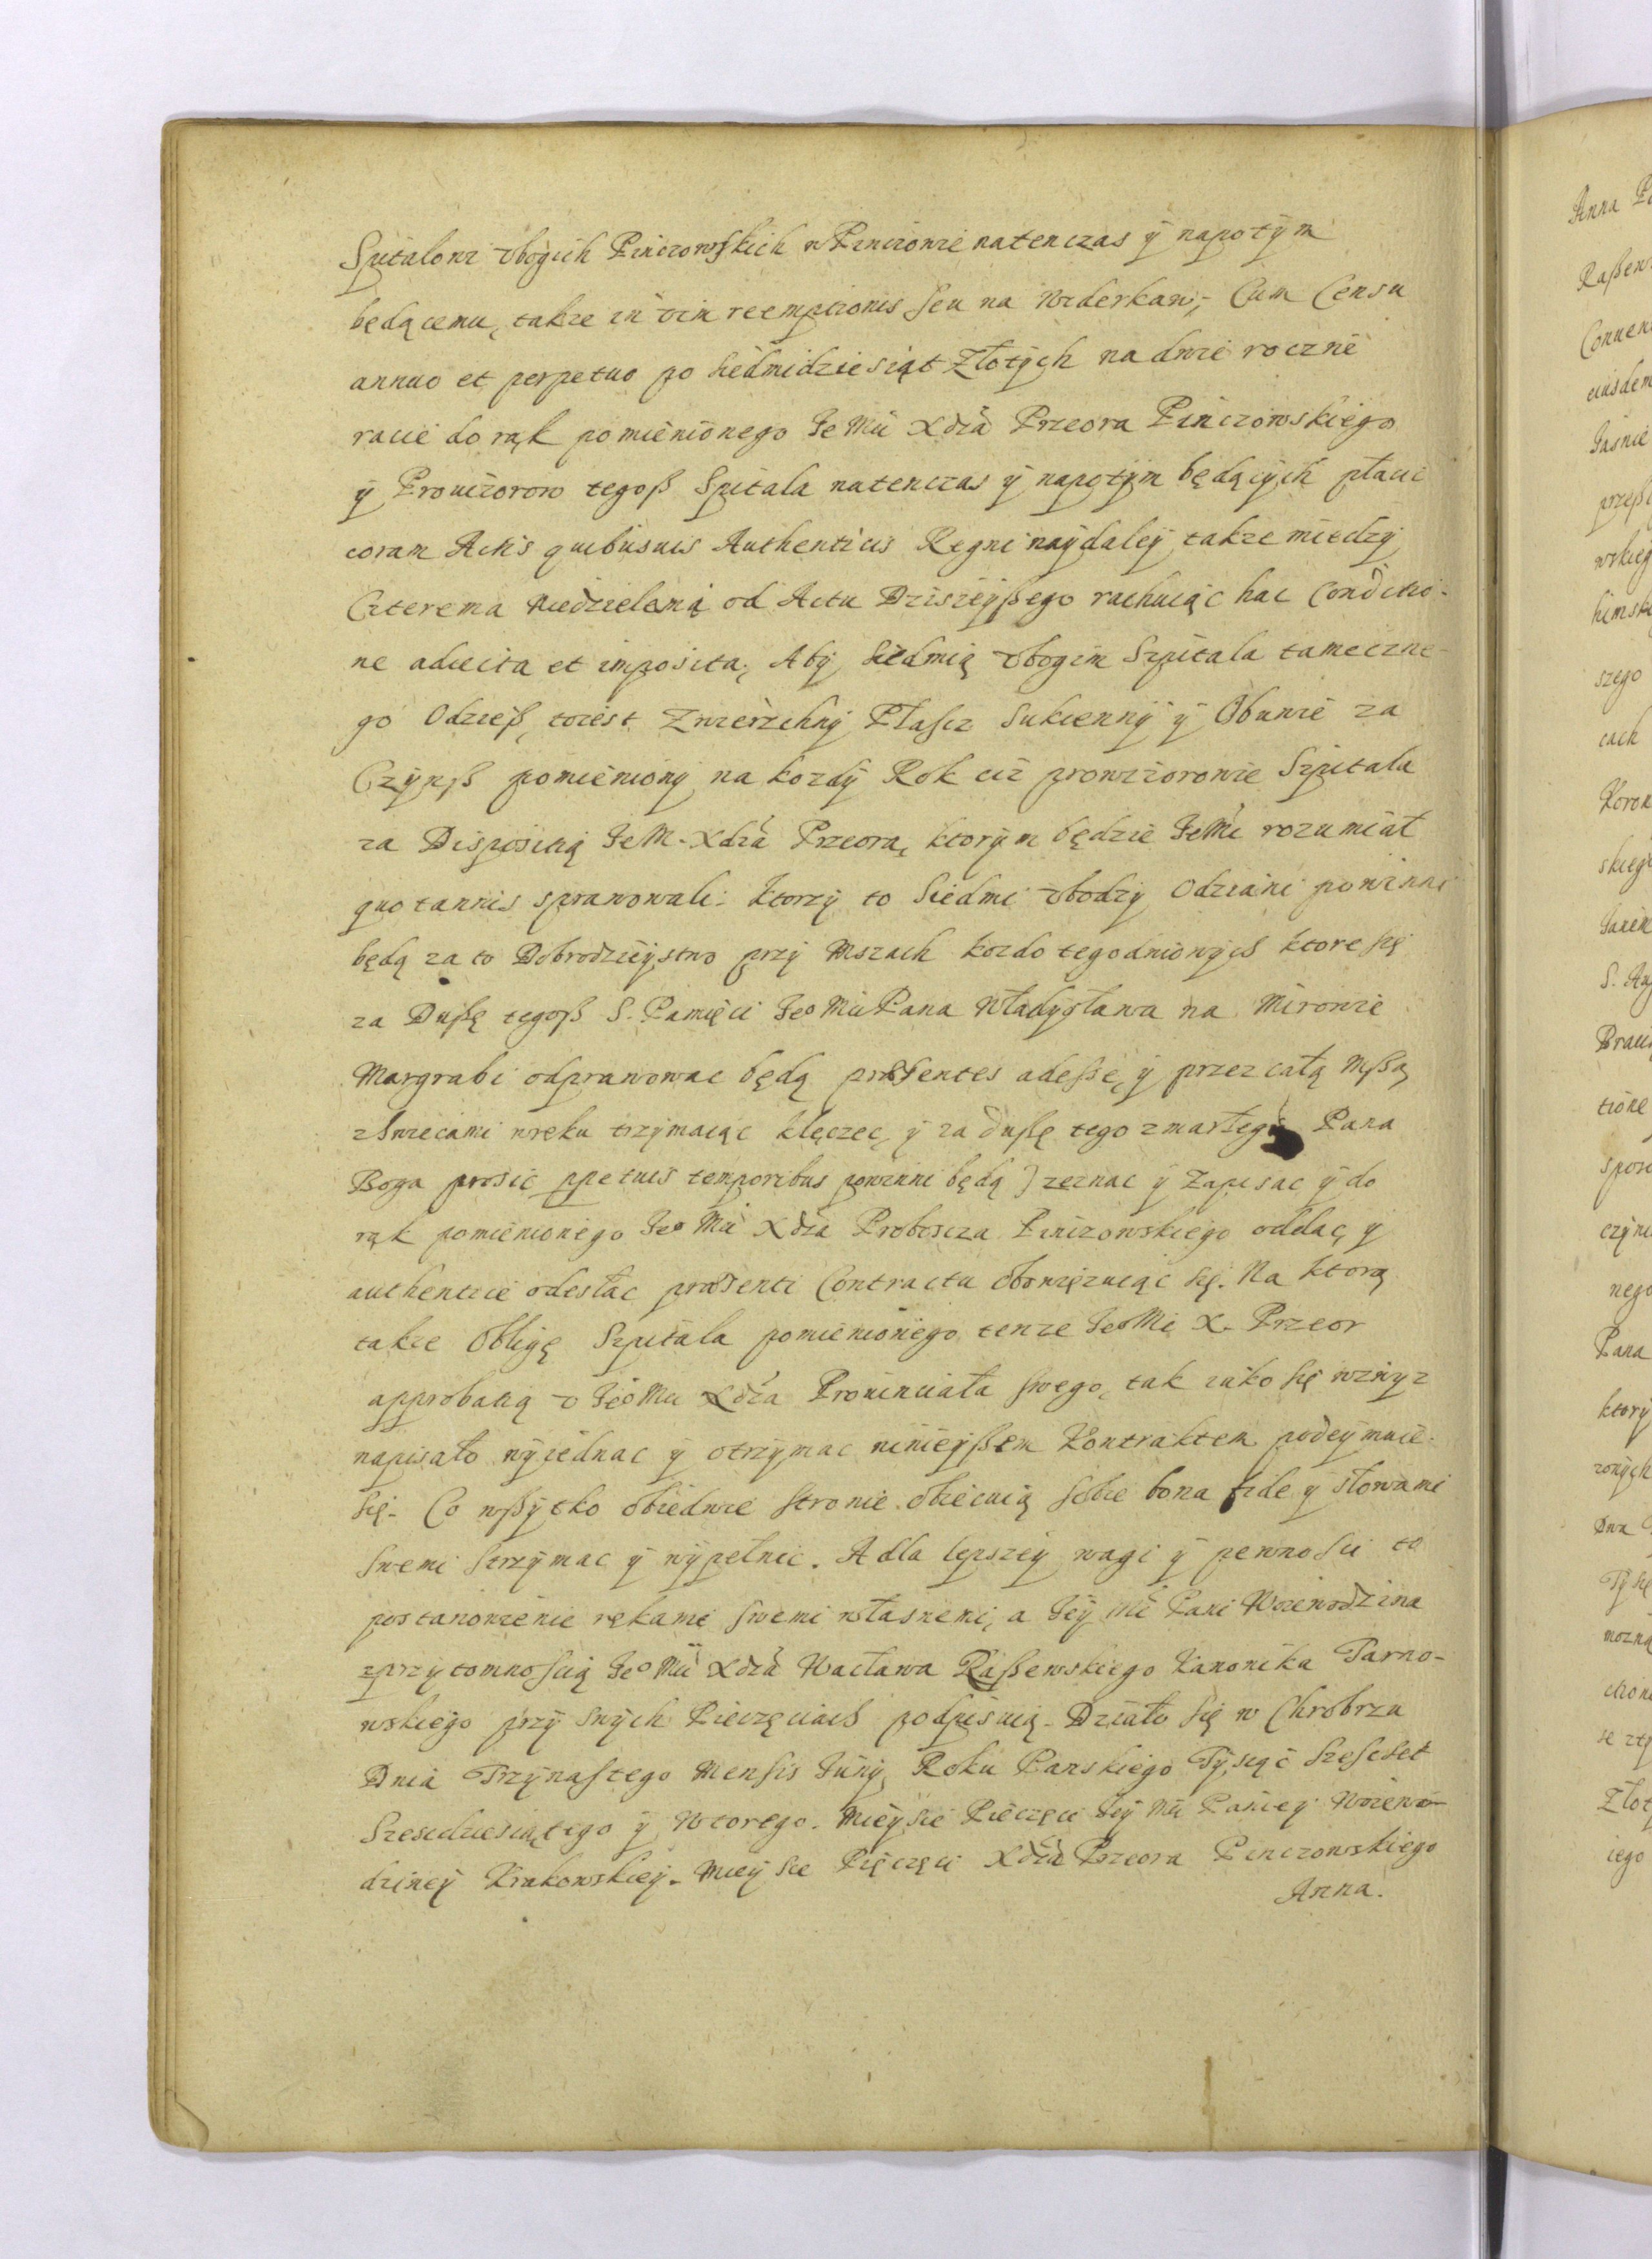 Szpitalowi Vbogich Pinczowskich w Pinczowie natenczas ÿ napotÿm
będącemu, takze in vim reemptionis seu na Widerkaw, Cum Censu
annuo et perpetuo po siedmidziesiąt Złotÿch na dwie roczne
racie do rąk pomienionego Je Mci Xdza Przeora Pinczowskiego
ÿ Prowizorow tegoß Spitala natenczas ÿ napotÿm będącÿch płacic
coram Actis quibusuis Authenticis Regni naÿdaleÿ takze miedzÿ
Czterema Niedzielamą od Actu Dzisieÿßego rachuiąc hac Conditio-
ne adiecta et imposita, Abÿ siedmią Vbogim Szpitala tameczne-
go Odzieß, toiest Zwierzchnÿ Płascz Sukiennÿ ÿ Obuwie za
Czÿnß pomienionÿ na kozdÿ Rok ciz prowizorowie Szpitala
za Disposicią JeM. Xdza Przeora, ktorÿm będzie JeMc rozumiał
quotannis sprawowali: Ktorzÿ to Siedmi Vbodzÿ Odziani powinni
będą za to Dobrodzieÿstwo przÿ Mszach kozdotegodniowÿch ktore się
za Dußę tegoß S. Pamięci Jeo Mci Pana Władÿsława na Mirowie
Margrabi odprawowac będą præsentes adesse, ÿ przez całą Mßą
z Swiecami wręku trzÿmaiąc klęczec, ÿ za dußę tego zmarłego Pana
Boga prosic ppetuis temporibus powinni będą) zeznac ÿ Zapisac ÿ do
rąk pomienionego Jeo Mci Xdza Proboscza Pinczowskiego oddac, ÿ
authentice odesłac præsenti Contractu obowięzuiąc się. Na ktorą
takze Obligę Szpitala pomienionego tenze JeoMc X. Przeor
approbatią v Jeo Mci Xdza Prouinciała swego, tak iako się wzwyz
napisało wÿiednac ÿ otrzÿmac ninieÿßem Kontraktem podeÿmuie
się. Co wßÿtko obiedwie stronie obiecuią sobie bona fide ÿ słowami
swemi strzÿmac ÿ wÿpełnic. A dla lepszeÿ wagi ÿ pewnosci to
postanowienie rękami swemi własnemi, a Jeÿ Mc Pani Woiewodzina
zprzÿtomnoscią Jeo Mci Xdza Wacława Raßewskiego Kanonika Tarno-
wskiego przÿ swÿch Pieczęciach podpisuią. Działo się w Chrobrzu
Dnia Trzÿnastego Mensis Junÿ, Roku Panskiego Tÿsiąc Szescset
Szescdziesiątego ÿ Wtorego. Mieÿsce Pieczęci Jeÿ Mci Panieÿ Woiewo-
dzineÿ Krakowskieÿ. Mieÿsce Pięczęci Xdza Przeora Pinczowskiego
Anna.